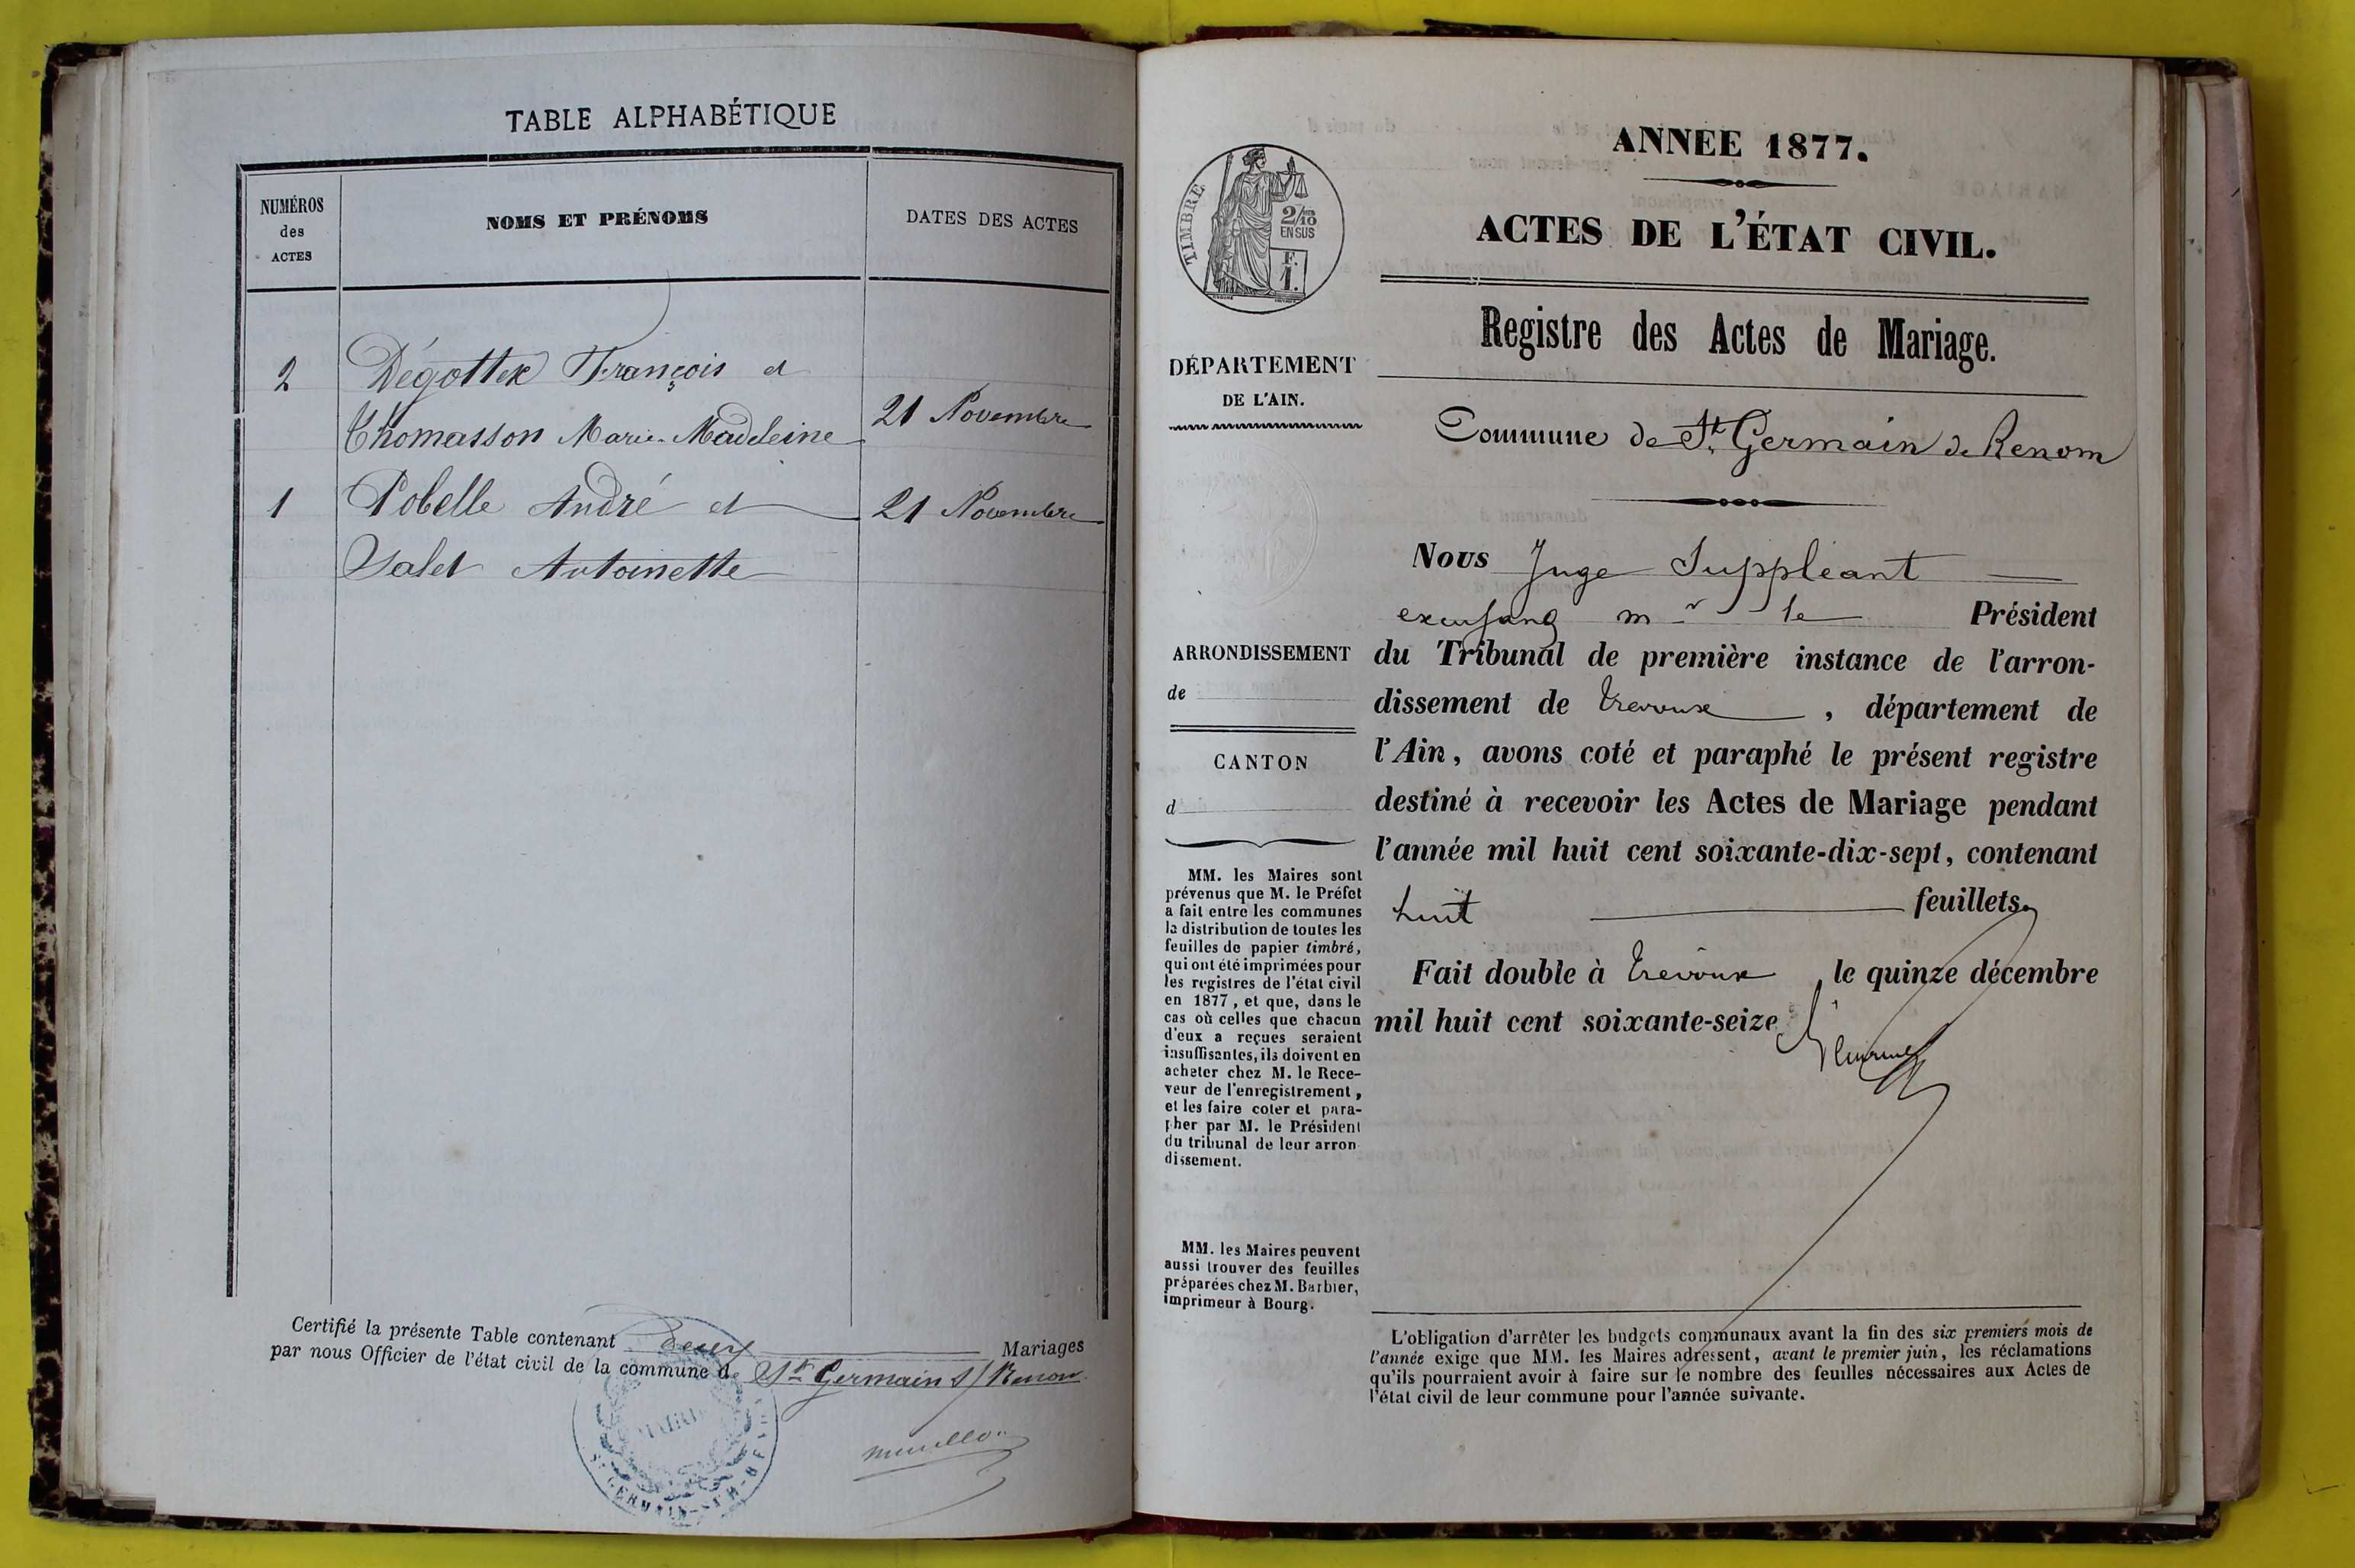 TABLE ALPHABÉTIQUE
NUMÉROS
des
ACTES
NOMS ET PRÉNOMS
DATES DES ACTES
2 Dégottex François et
Thomasson Marie-Madeleine 21 Novembre
1 Pobelle André et 21 Novembre
Salet Antoinette
Certifié la présente Table contenant deux Mariages
par nous Officier de l'état civil de la commune de St Germain S/ Renon
MAIRIE
ST GERMAIN-SUR-RENON
ANNÉE 1877.
ACTES DE L'ÉTAT CIVIL.
TIMBRE
2/10
EN SUS
F.
1.
Registre des Actes de Mariage.
DÉPARTEMENT
DE L'AIN.
Commune de St Germain de Renom
Nous Juge Suppléant
mr le Président
du Tribunal de première instance de l'arron-
dissement de Trevoux, département de
l'Ain, avons coté et paraphé le présent registre
destiné à recevoir les Actes de Mariage pendant
l'année mil huit cent soixante-dix-sept, contenant
huit feuillets.
Fait double à Trevoux, le quinze décembre
mil huit cent soixante-seize
ARRONDISSEMENT
de
CANTON
d
MM. les Maires sont
prévenus que M. le Préfet
a fait entre les communes
la distribution de toutes les
feuilles de papier timbré,
qui ont été imprimées pour
les registres de l'état civil
en 1877, et que, dans le
cas où celles que chacun
d'eux a reçues seraient
insuffisantes, ils doivent en
acheter chez M. le Rece-
veur de l'enregistrement,
et les faire coter et para-
pher par M. le Président
du tribunal de leur arron
dissement.
MM. les Maires peuvent
aussi trouver des feuilles
préparées chez M. Barbier,
imprimeur à Bourg.
L'obligation d'arrêter les budgets communaux avant la fin des six premiers mois de
l'année exige que MM. les Maires adressent, avant le premier juin, les réclamations
qu'ils pourraient avoir à faire sur le nombre des feuilles nécessaires aux Actes de
l'état civil de leur commune pour l'année suivante.